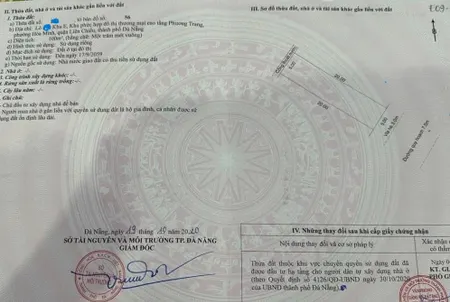 II. Thửa đất, nhà ở và tài sản khác gắn liền với đất
1. Thửa đất:
a) Thửa đất số: xx tờ bản đồ số: 56
b) Địa chỉ: Khu E, Khu phức hợp đô thị thương mại cao tầng Phương Trang,
phường Hòa Minh, quận Liên Chiểu, thành phố Đà Nẵng
c) Diện tích: 100m², (bằng chữ: Một trăm mét vuông)
d) Hình thức sử dụng: Sử dụng riêng
đ) Mục đích sử dụng: Đất ở tại đô thị
e) Thời hạn sử dụng: Đến ngày 17/9/2059
g) Nguồn gốc sử dụng: Nhà nước giao đất có thu tiền sử dụng đất
2. Nhà ở: -/-.
3. Công trình xây dựng khác: -/-.
4. Rừng sản xuất là rừng trồng: -/-.
5. Cây lâu năm: -/-.
6. Ghi chú:
- Chủ đầu tư xây dựng nhà để bán
- Người mua nhà ở gắn liền với quyền sử dụng đất là hộ gia đình, cá nhân được sử
dụng đất ổn định lâu dài.
Đà Nẵng, ngày 19
SỞ TÀI NGUYÊN VÀ MÔI TRƯỜNG TP. ĐÀ NẴNG
GIÁM ĐỐC
III. Sơ đồ thửa đất, nhà ở và tài sản khác gắn liền với đất
E09-
20.00
20.00
5.00
5.00
Đường quy hoạch 7.5m
IV. Những thay đổi sau khi cấp giấy chứng nhận
Nội dung thay đổi và cơ sở pháp lý
Xác nhận
có thẩm
Thửa đất thuộc khu vực chuyển quyền sử dụng đất đã
được đầu tư hạ tầng cho người dân tự xây dựng nhà ở
(theo Quyết định số 4126/QĐ-UBND ngày 30/10/2020
của UBND thành phố Đà Nẵng).
KT. GI
PHÓ G